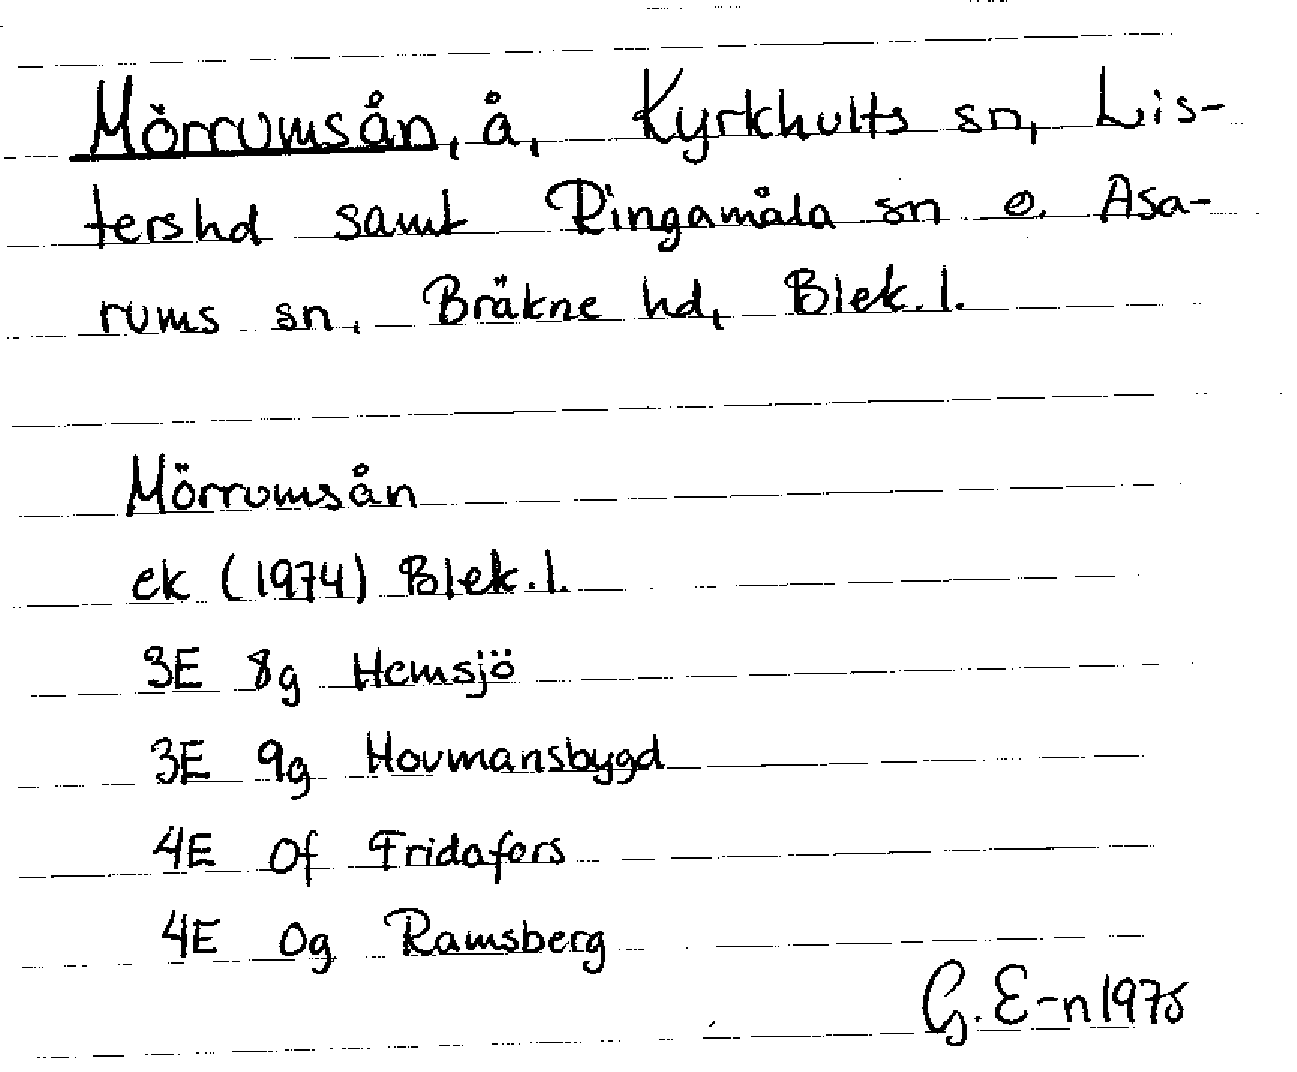 Mörrumsån, å, Kyrkhults sn, Lis-
tershd samt Ringamåla sn o. Asa-
rums sn, Bräkne hd, Blek.l.
Mörrumsån
ek (1974) Blek.l.
3E 8g Hemsjö
3E 9g Hovmansbygd
4E 0f Fridafors
4E 0g Ramsberg
G. E-n 1975